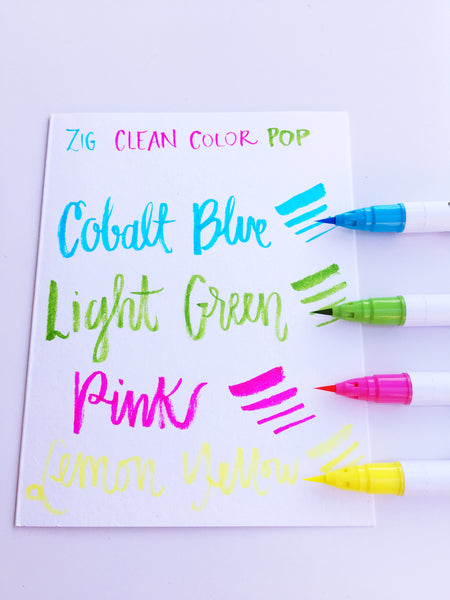 ZIG CLEAN COLOR POP
Cobalt Blue
Light Green
Pink
Lemon Yellow